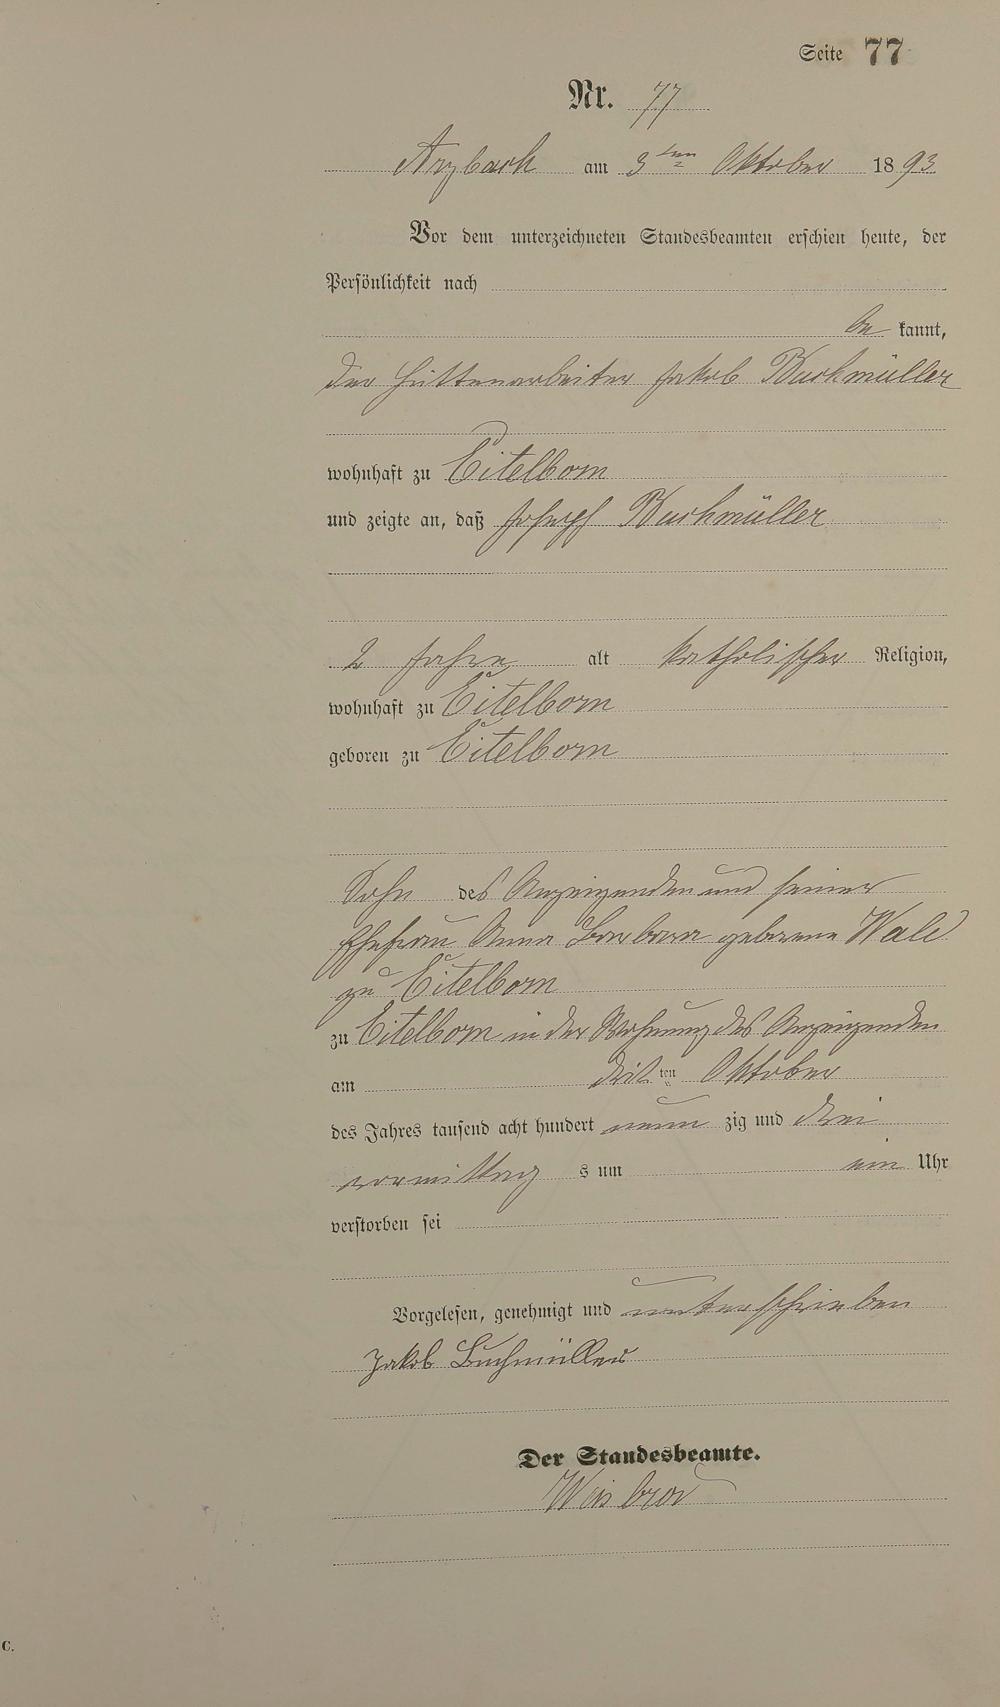 Seite 77
Nr. 77
Arzbach am 3ten Oktober 1893
Vor dem unterzeichneten Standesbeamten erschien heute, der
Persönlichkeit nach
be kannt,
der Hüttenarbeiter Jakob Buchmüller
wohnhaft zu Eitelborn
und zeigte an, daß Joseph Buchmüller
2 Jahre alt katholischer Religion,
wohnhaft zu Eitelborn
geboren zu Eitelborn
Sohn des Anzeigenden und seiner
Ehefrau Anna Barbara geborene Wald
zu Eitelborn
zu Eitelborn in der Wohnung des Anzeigenden
am ten Oktober
des Jahres tausend acht hundert neun zig und drei
vormittag s um ein Uhr
verstorben sei
Vorgelesen, genehmigt und unterschrieben
Jakob Buchmüller
Der Standesbeamte.
Weisbrod
C.